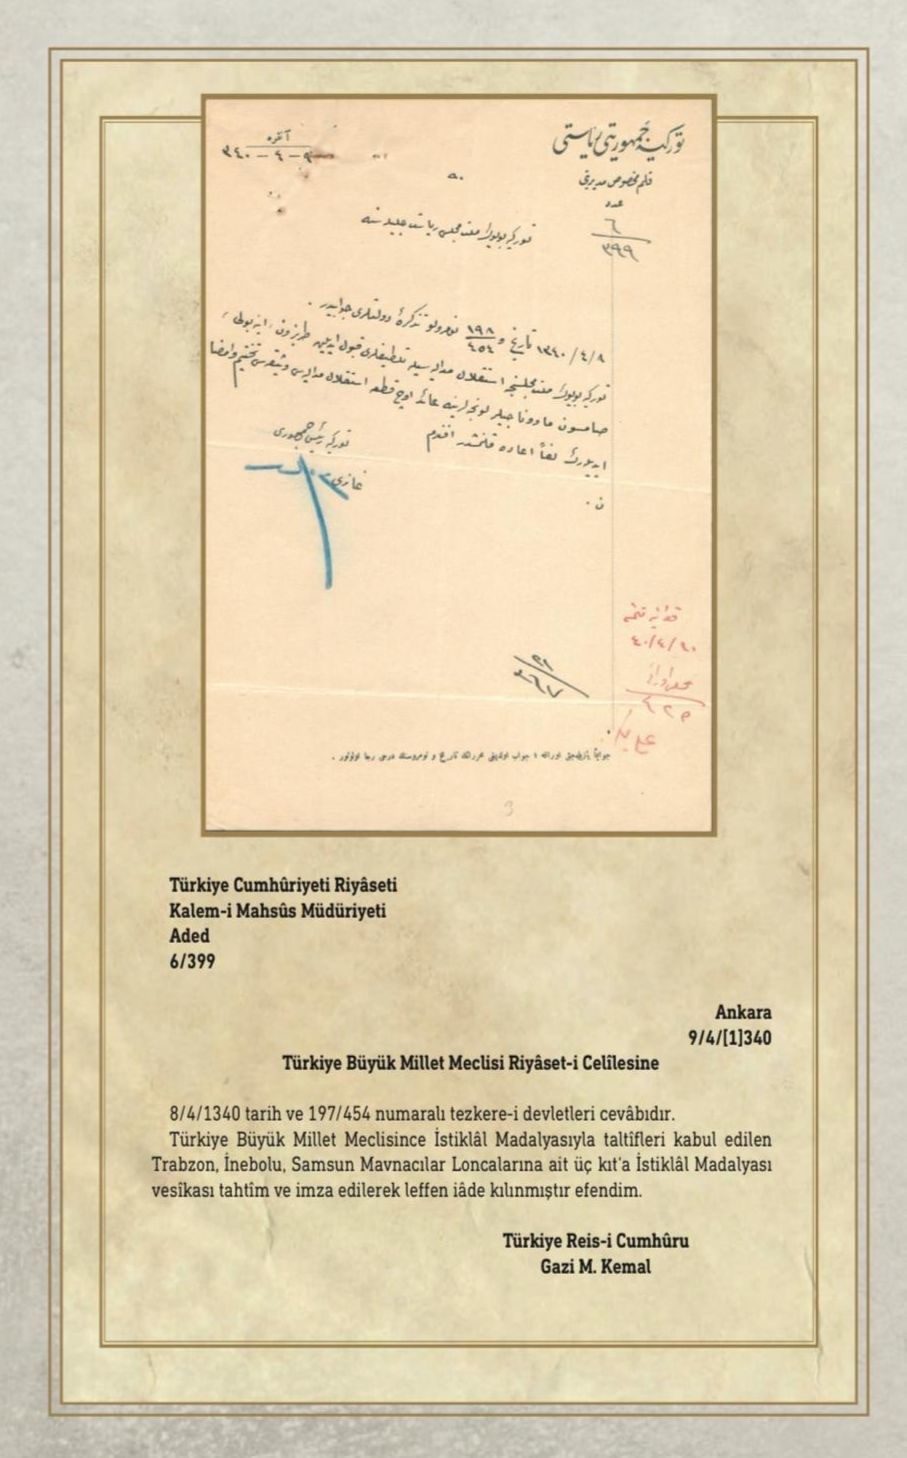 توركيه جمهوريتى رياستى
قلم مخصوص مديريتى
عدد
٦
٣٩٩
آنقره
٩ - ٤ - ٣٤٠
توركيه بويوك ملت مجلسى رياست جليله سنه
٨ / ٤ / ١٣٤٠ تاريخ و ١٩٨ / ٤٥٤ نومرولو تذكرهٔ دولتلرى جوابيدر .
توركيه بويوك ملت مجلسنجه استقلال مداليه سيله تلطيفلرى قبول ايديلن طربزون ، اينه بولى ،
صامسون ماوناجيلر لونجه لرينه عائد اوچ قطعه استقلال مداليه سى وثيقه سى تختيم وامضا
ايديلرك لفاً اعاده قلنمشدر افندم
توركيه رئيس جمهورى
غازى م . كمال
Türkiye Cumhûriyeti Riyâseti
Kalem-i Mahsûs Müdüriyeti
Aded
6/399
Ankara
9/4/[1]340
Türkiye Büyük Millet Meclisi Riyâset-i Celîlesine
8/4/1340 tarih ve 197/454 numaralı tezkere-i devletleri cevâbıdır.
Türkiye Büyük Millet Meclisince İstiklâl Madalyasıyla taltîfleri kabul edilen
Trabzon, İnebolu, Samsun Mavnacılar Loncalarına ait üç kıt'a İstiklâl Madalyası
vesîkası tahtîm ve imza edilerek leffen iâde kılınmıştır efendim.
Türkiye Reis-i Cumhûru
Gazi M. Kemal